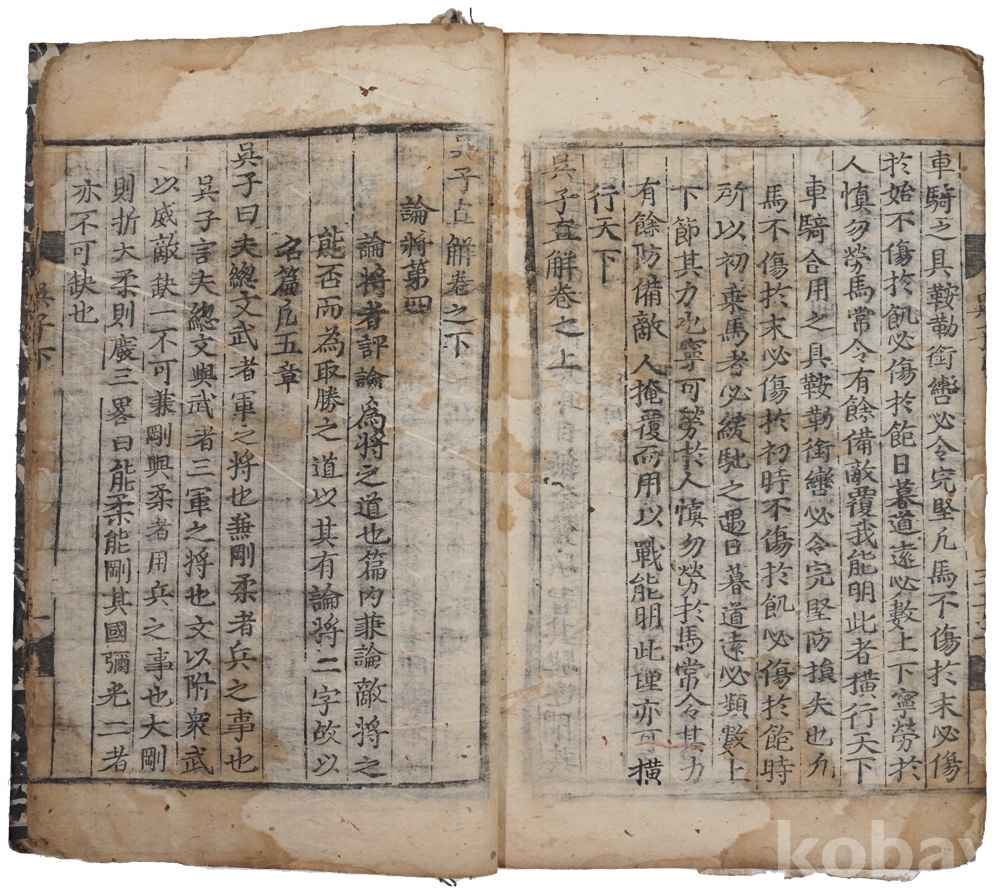 車騎之具鞍勒銜轡必令完堅凡馬不傷於末必傷
於始不傷於飢必傷於飽日暮道遠必數上下寧勞於
人愼勿勞馬常令有餘備敵覆我能明此者橫行天下
車騎合用之具鞍勒銜轡必令完堅防損失也凡
馬不傷於末必傷於初時不傷於飢必傷於飽時
所以初乘馬者必緩馳之遇日暮道遠必頻數上
下節其力也寧可勞於人愼勿勞於馬常令其力
有餘防備敵人掩覆而用以戰能明此理亦可橫
行天下
吳子直解卷之上
吳子直解卷之下
論將第四
論將者評論為將之道也篇內兼論敵將之
能否而為取勝之道以其有論將二字故以
名篇凡五章
吳子曰夫緫文武者軍之將也兼剛柔者兵之事也
吳子言夫緫文與武者三軍之將也文以附衆武
以威敵缺一不可兼剛與柔者用兵之事也大剛
則折大柔則廢三畧曰能柔能剛其國彌光二者
亦不可缺也
吳子下
一
kobay